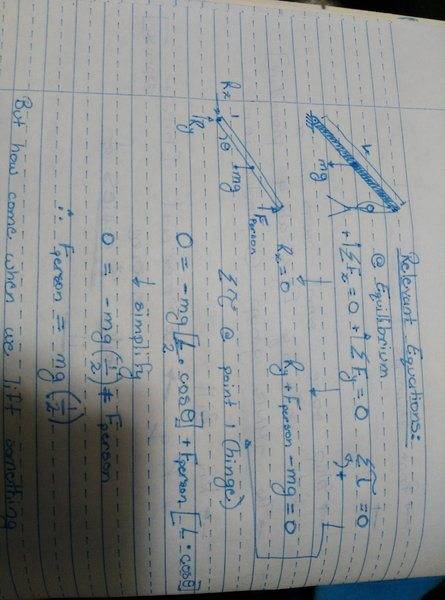 Relevant Equations:
@ Equilibrium
+ ΣFx = 0 + ΣFy = 0 Στ = 0 +
L
mg
θ
Rx = 0 Ry + Fperson - mg = 0
Στ @ point 1 (hinge)
Rx 1 θ mg Fperson
Ry
0 = -mg[L/2 · cosθ] + Fperson[L · cosθ]
↓ simplify
0 = -mg(1/2) + Fperson
∴ Fperson = mg(1/2)
But how come when we lift something